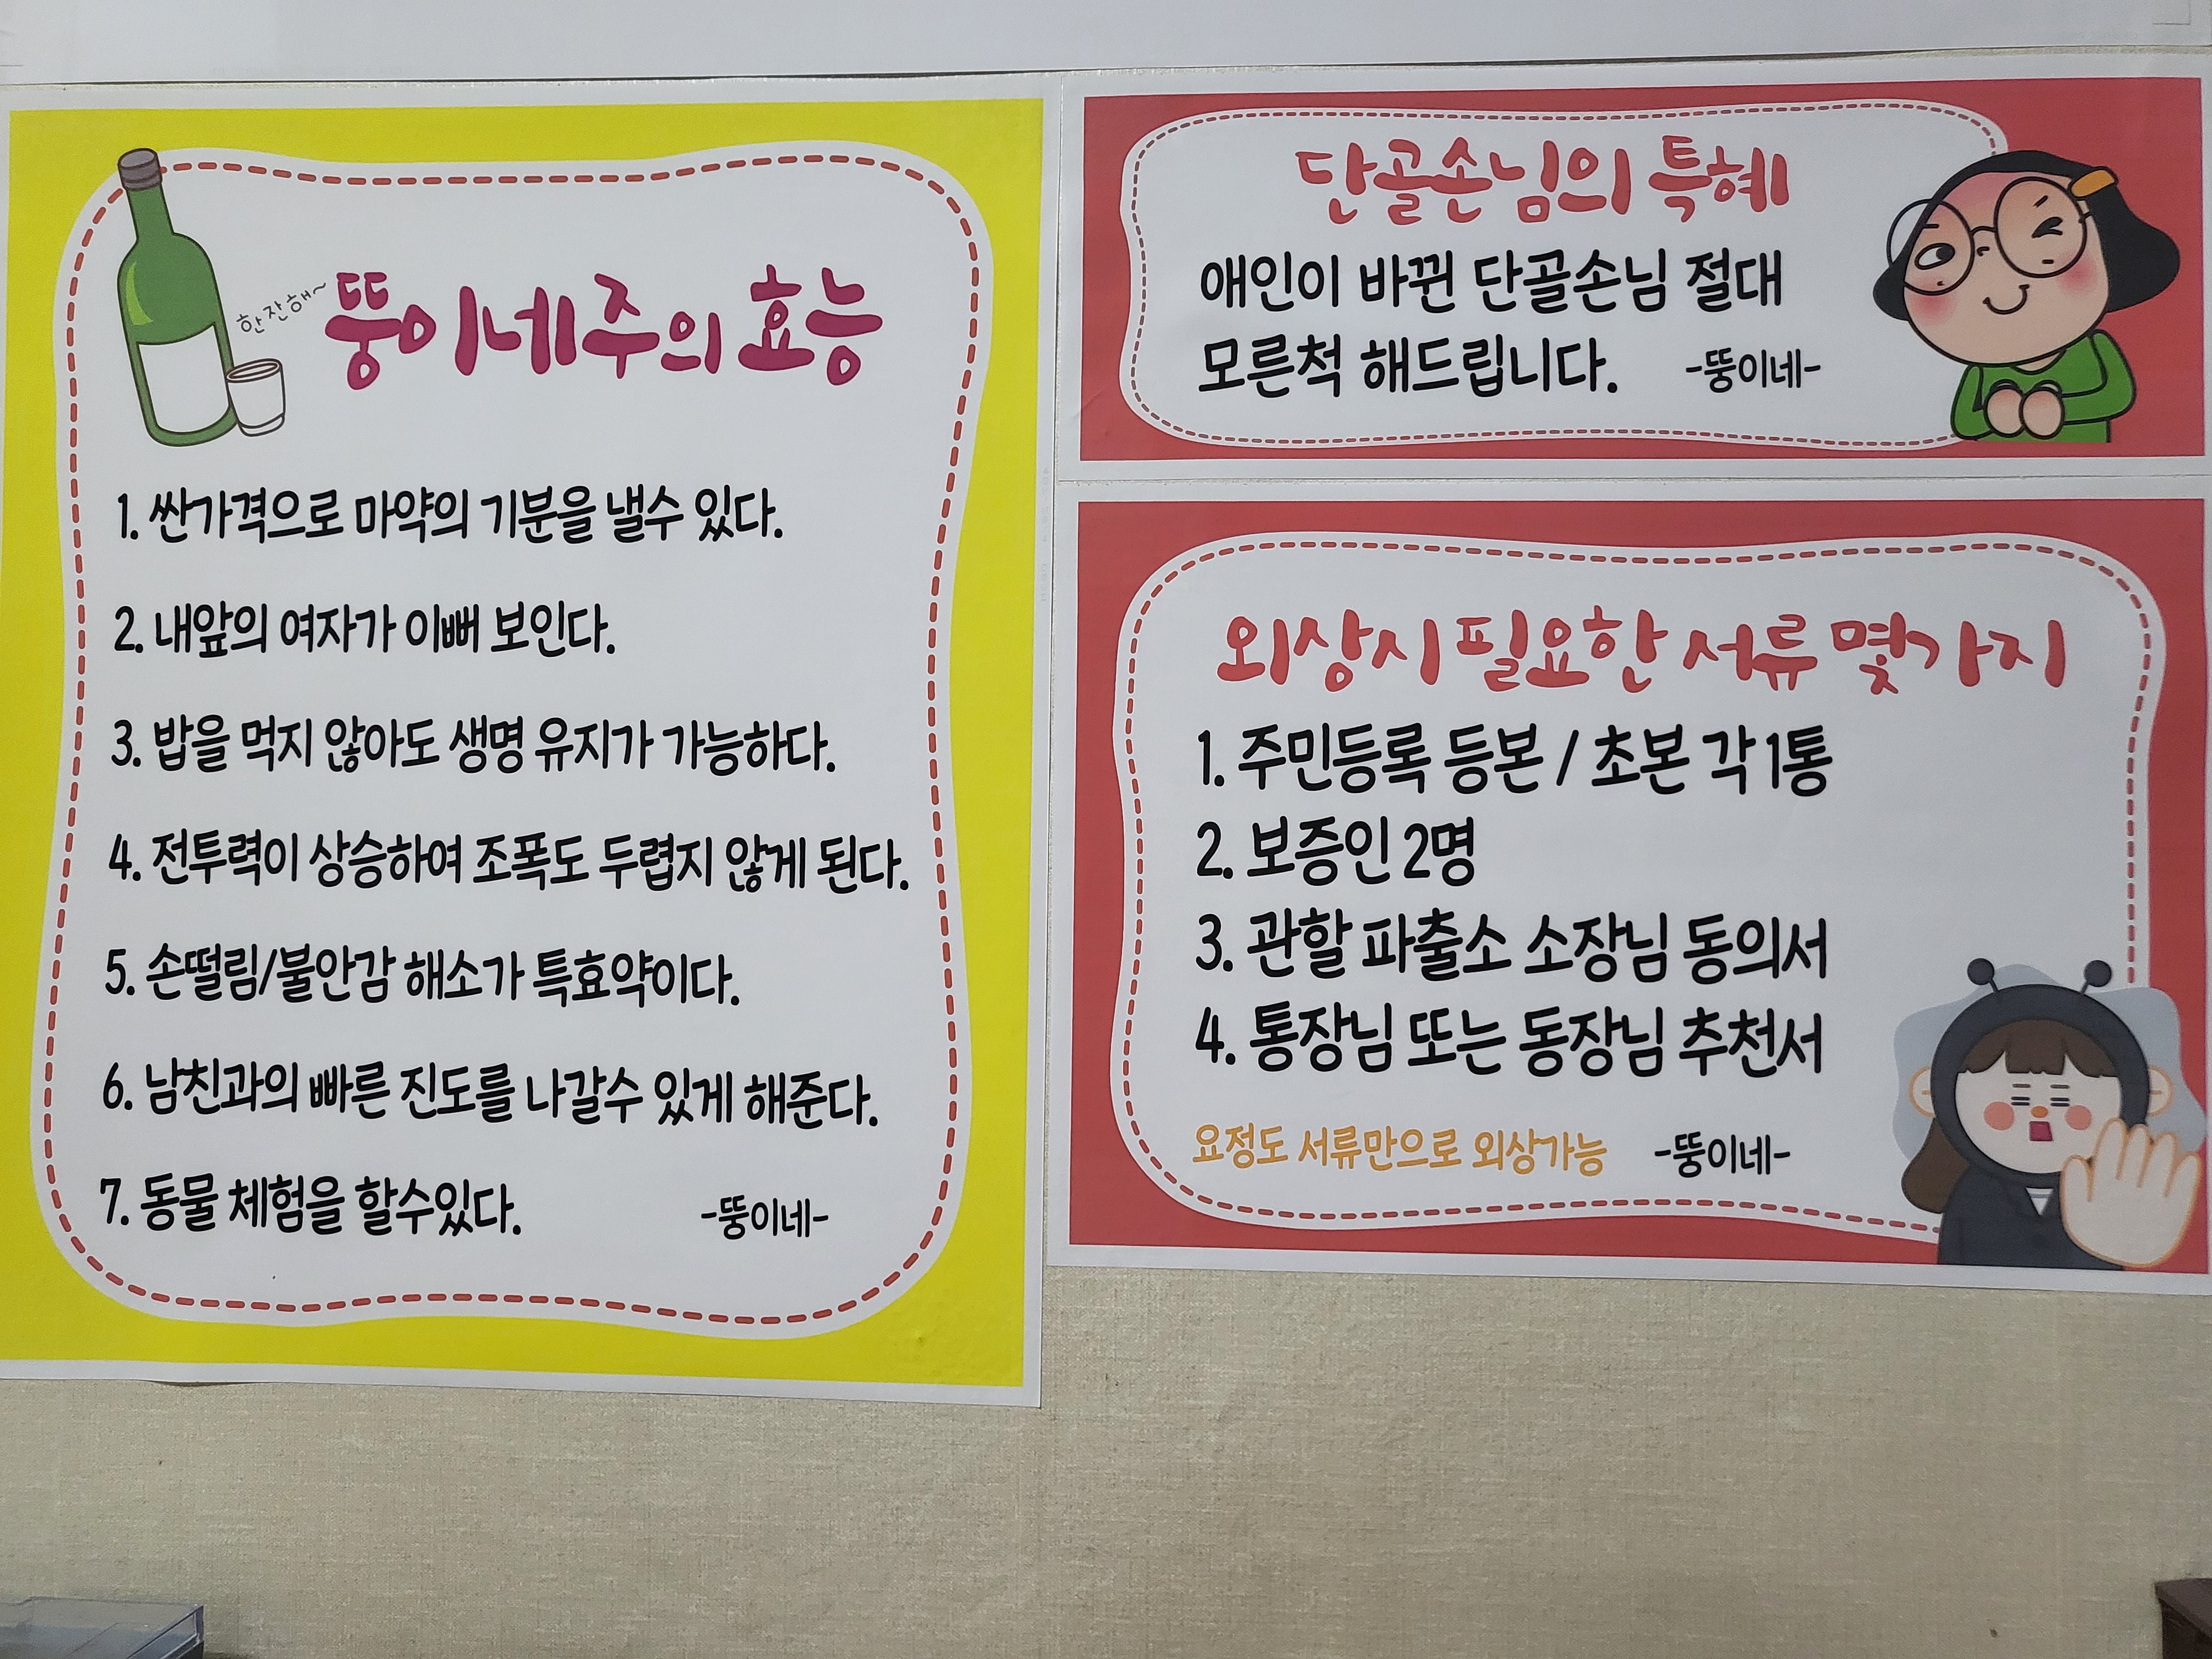 한잔해~
뚱이네주의 효능
1. 싼가격으로 마약의 기분을 낼수 있다.
2. 내앞의 여자가 이뻐 보인다.
3. 밥을 먹지 않아도 생명 유지가 가능하다.
4. 전투력이 상승하여 조폭도 두렵지 않게 된다.
5. 손떨림/불안감 해소가 특효약이다.
6. 남친과의 빠른 진도를 나갈수 있게 해준다.
7. 동물 체험을 할수있다.
-뚱이네-
단골손님의 특혜
애인이 바뀐 단골손님 절대
모른척 해드립니다. -뚱이네-
외상시 필요한 서류 몇가지
1. 주민등록 등본 / 초본 각 1통
2. 보증인 2명
3. 관할 파출소 소장님 동의서
4. 통장님 또는 동장님 추천서
요정도 서류만으로 외상가능 -뚱이네-